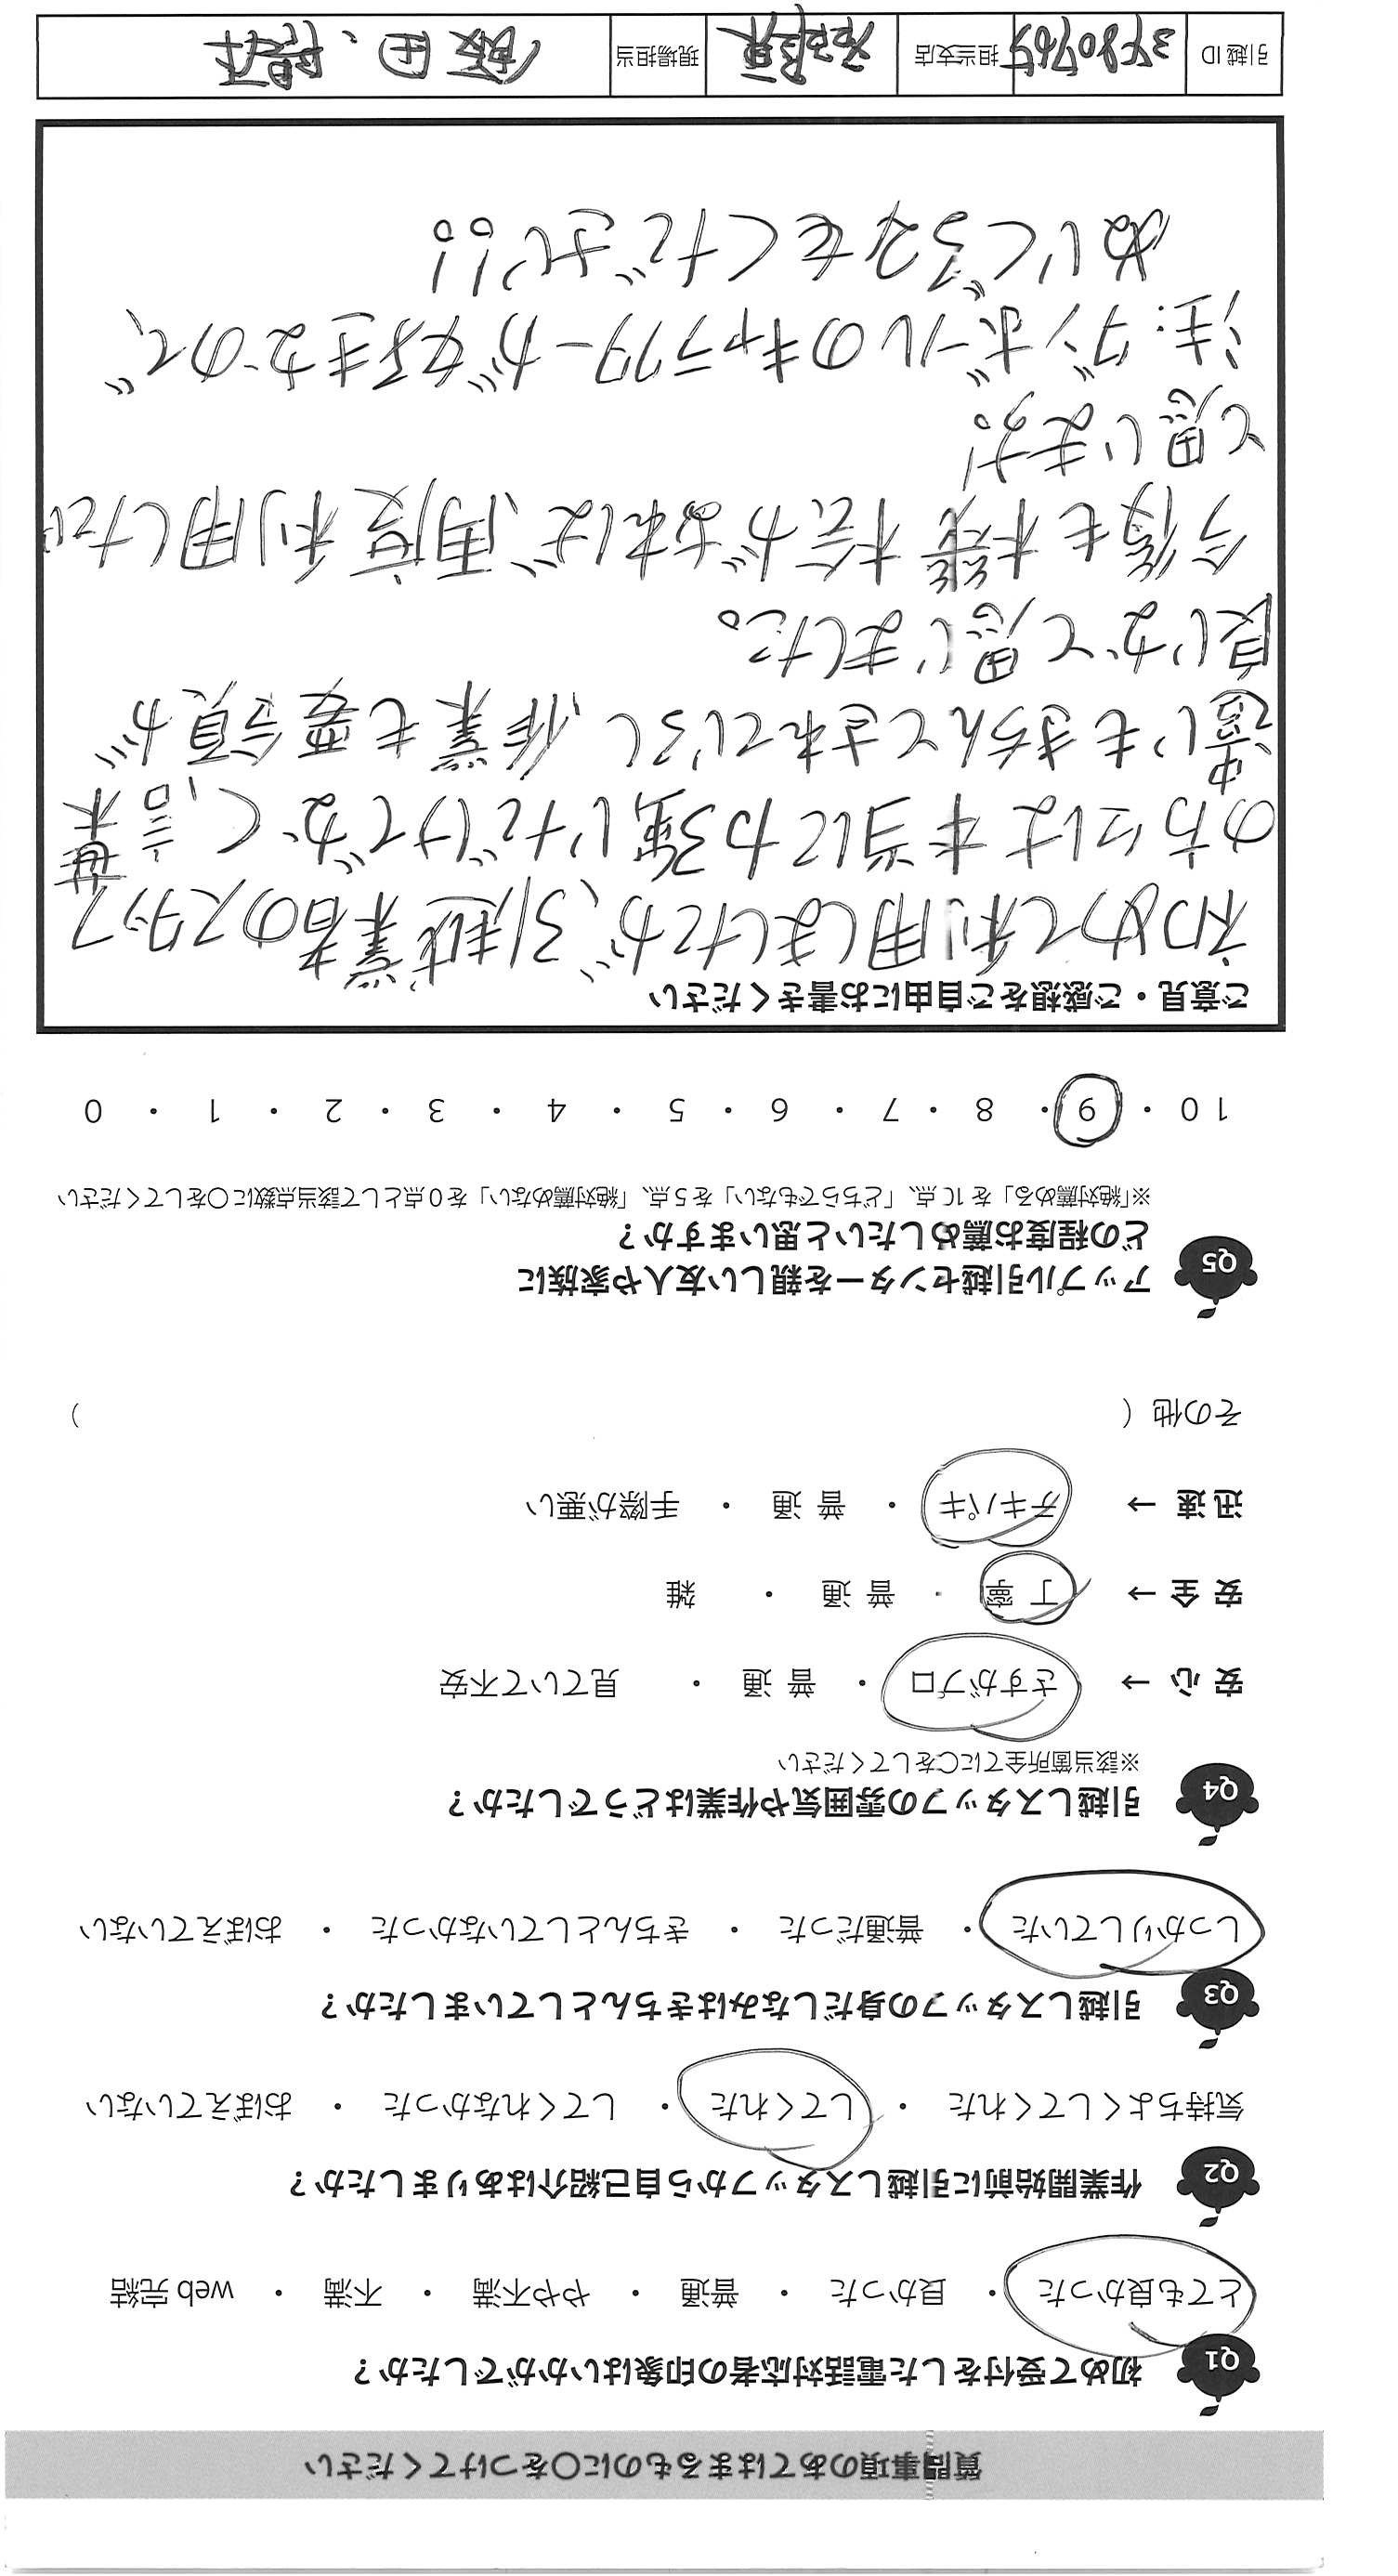 質問事項のあてはまるものに〇をつけてください
Q1 初めて受付をした電話対応者の印象はいかがでしたか？
とても良かった ・ 良かった ・ 普通 ・ やや不満 ・ 不満 ・ web 完結
Q2 作業開始前に引越しスタッフから自己紹介はありましたか？
気持ちよくしてくれた ・ してくれた ・ してくれなかった ・ おぼえていない
Q3 引越しスタッフの身だしなみはきちんとしていましたか？
しっかりしていた ・ 普通だった ・ きちんとしていなかった ・ おぼえていない
Q4 引越しスタッフの雰囲気や作業はどうでしたか？
※該当箇所全てに〇をしてください
安心 → さすがプロ ・ 普通 ・ 見ていて不安
安全 → 丁寧 ・ 普通 ・ 雑
迅速 → テキパキ ・ 普通 ・ 手際が悪い
その他（ ）
Q5 アップル引越センターを親しい友人や家族に
どの程度お薦めしたいと思いますか？
※「絶対薦める」を10点、「どちらでもない」を5点、「絶対薦めない」を0点として該当点数に〇をしてください
10 ・ 9 ・ 8 ・ 7 ・ 6 ・ 5 ・ 4 ・ 3 ・ 2 ・ 1 ・ 0
ご意見・ご感想をご自由にお書きください
初めて利用しましたが、引越業者のスタッフ
の方には本当に力強いだけでなく、言葉
遣いもきちんとされているし、作業も要領が
良いなと思いました。
今後も機会があれば、再度利用したい
と思います！
注：ダンボールのキャラクターが好きなので、
ぬいぐるみをください！！
引越ID 担当支店 現場担当 飯田、